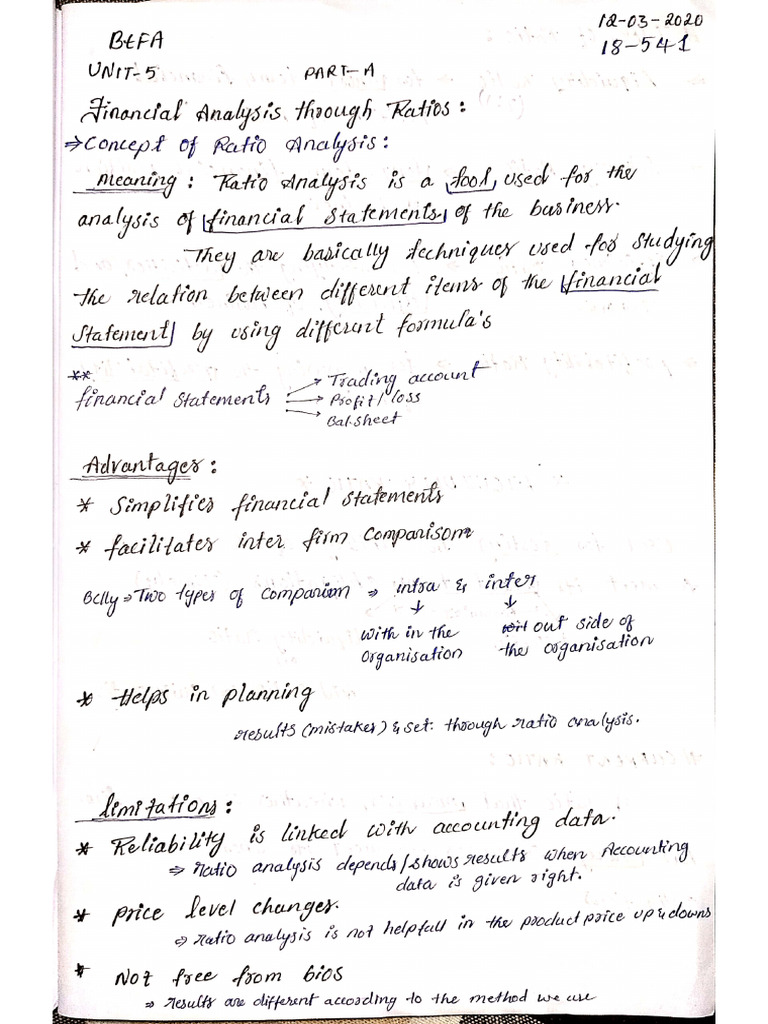 12-03-2020
BEFA
18-541
UNIT-5 PART-A
Financial Analysis through Ratios:
⇒Concept of Ratio Analysis:
Meaning: Ratio Analysis is a tool, used for the
analysis of financial statements of the business.
They are basically techniques used for studying
the relation between different items of the financial
Statement by using different formula's
**
financial statements → Trading account
→ Profit/loss
→ Bal.sheet
Advantages:
* Simplifies financial statements
* facilitates inter firm comparison
Bclly⇒Two types of comparison ⇒ intra & inter
↓ ↓
with in the out side of
organisation the organisation
* Helps in planning
results (mistakes) & set: through ratio analysis.
limitations:
* Reliability is linked with accounting data.
⇒ ratio analysis depends/shows results when Accounting
data is given right.
* price level changes.
⇒ ratio analysis is not helpfull in the product price up & downs
* Not free from bios
⇒ results are different according to the method we use